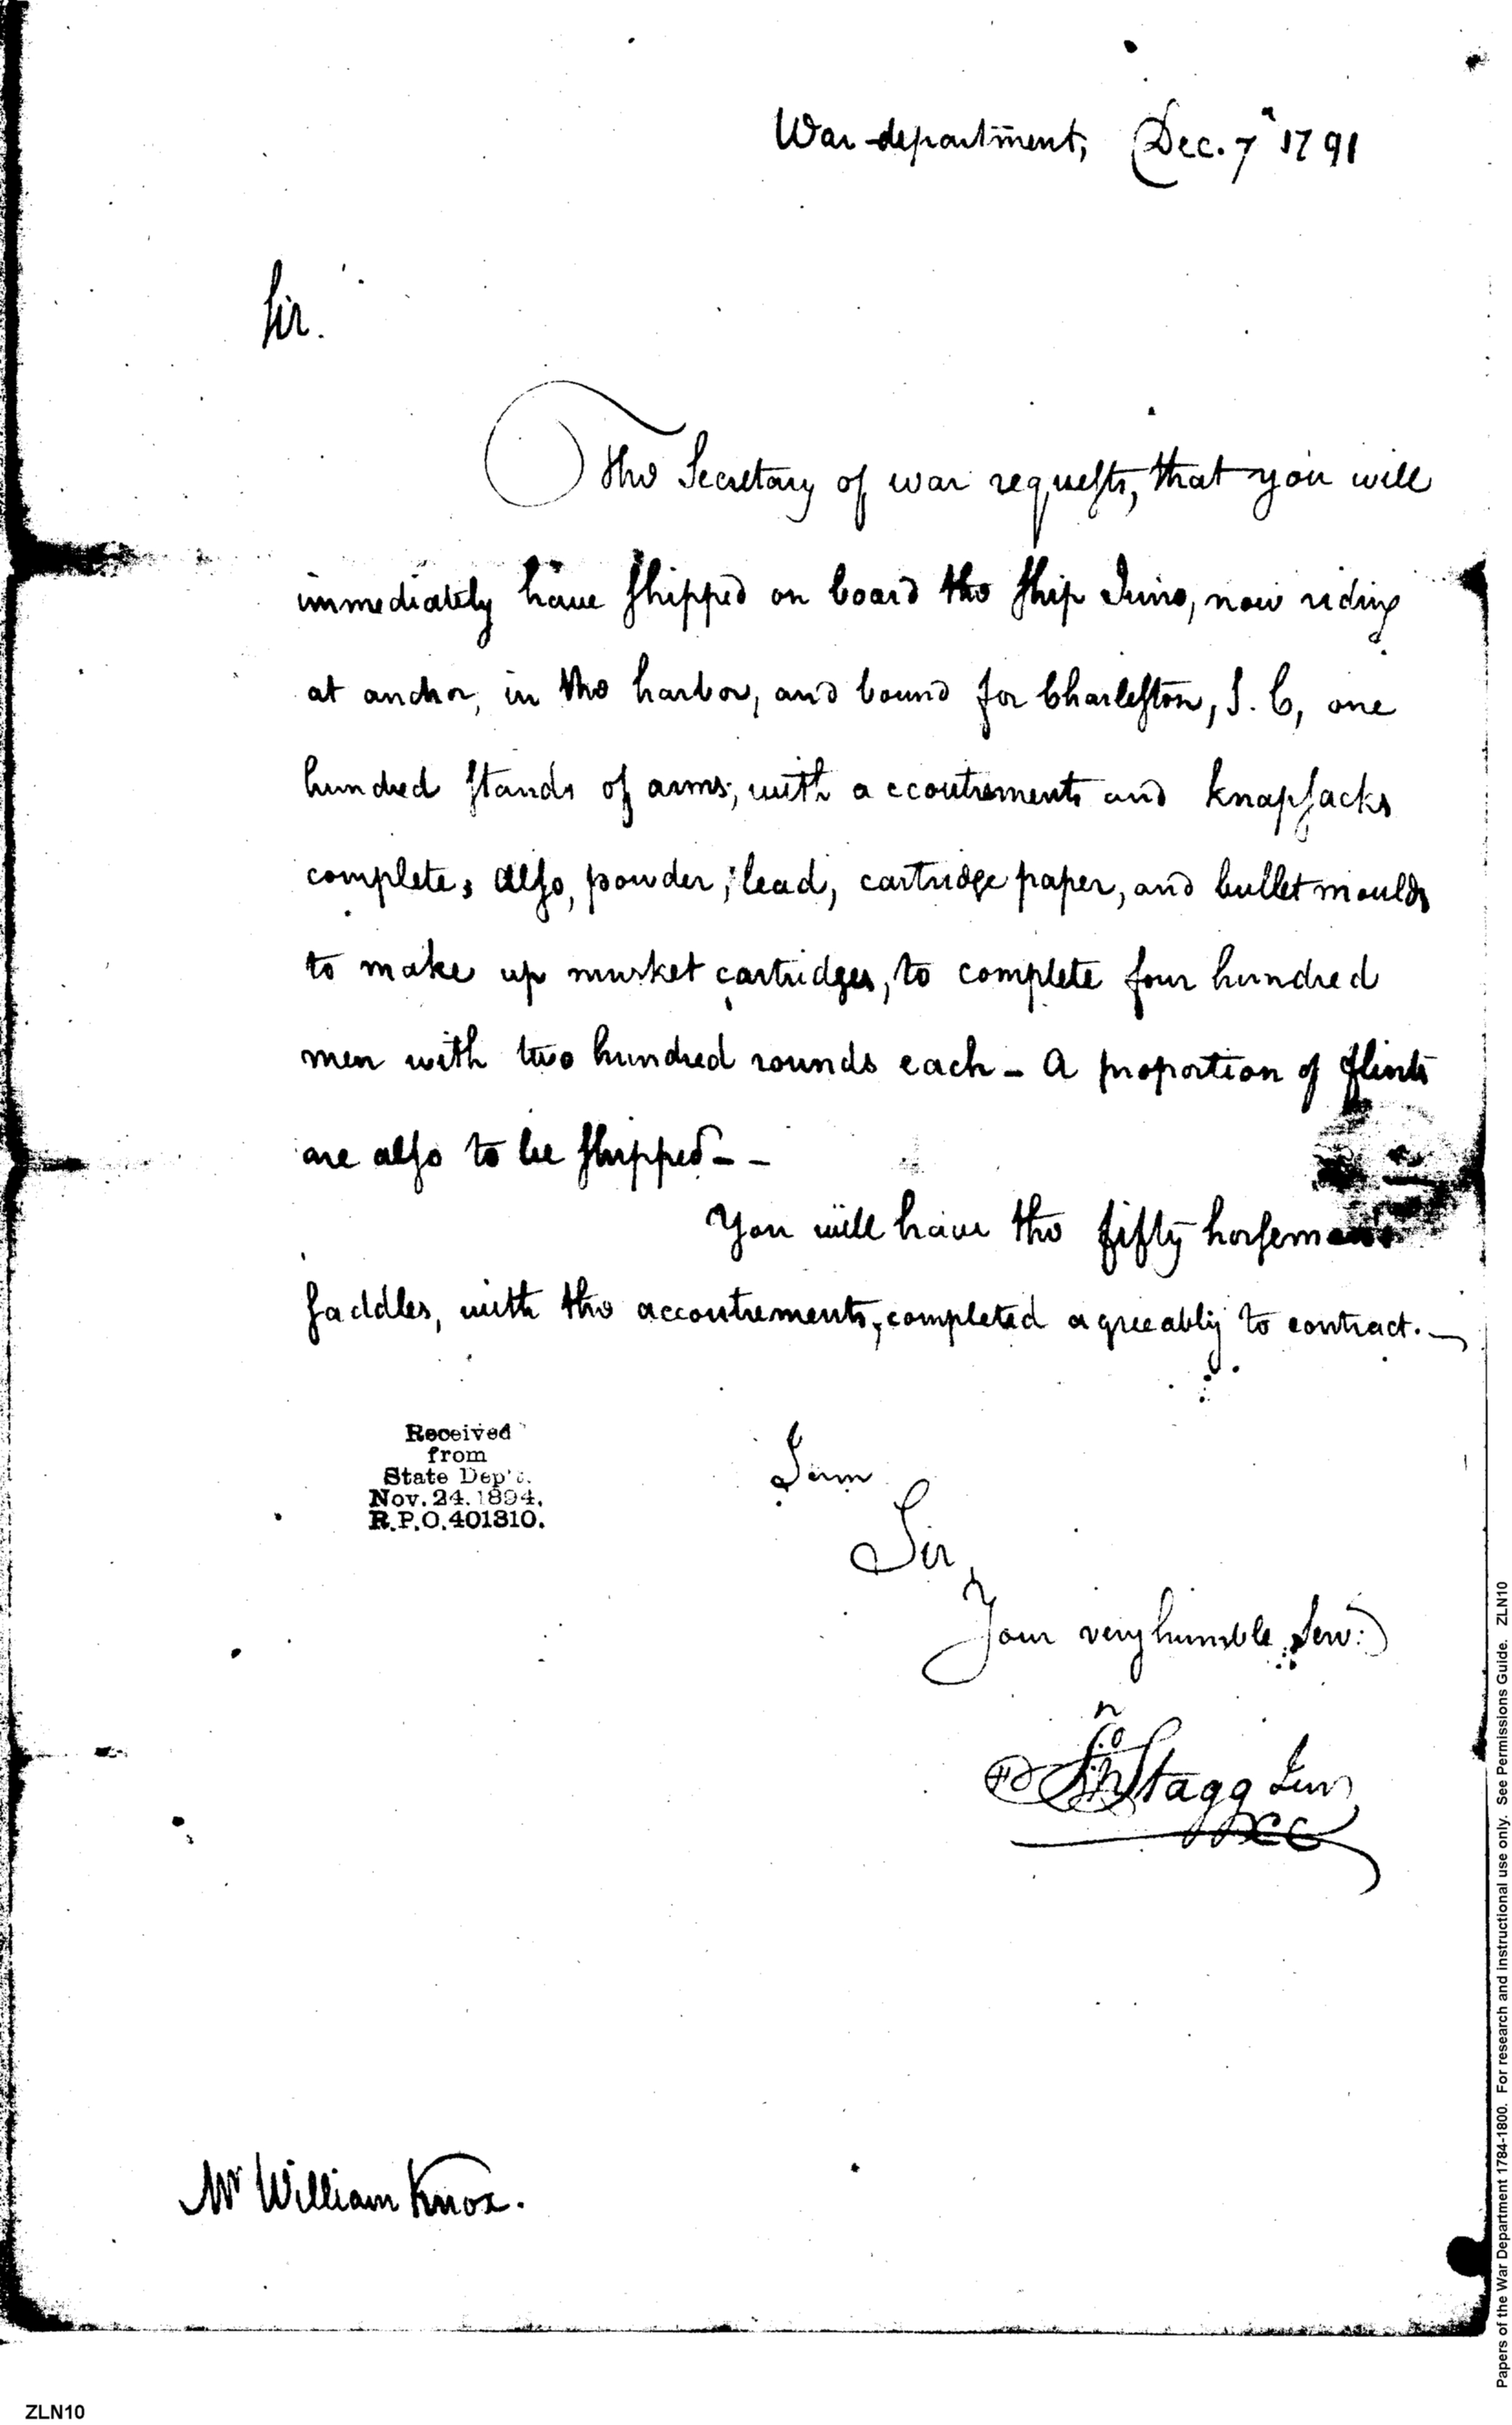 War-department, Dec. 7th 1791
Sir.
The Secretary of war requests, that you will
immediately have shipped on board the ship Juno, now riding
at anchor, in the harbor, and bound for Charleston, S. C, one
hundred stands of arms, with accoutrements and knapsacks
complete; also, powder, lead, cartridge paper, and bullet moulds
to make up musket cartridges, to complete four hundred
men with two hundred rounds each - A proportion of flints
are also to be shipped - -
You will have the fifty horsemans
saddles, with the accoutrements, completed agreeably to contract. -
Received
from
State Dep't.
Nov. 24. 1894.
R.P.O. 401310.
I am
Sir,
Your very humble Serv:
Jno Stagg Junr
CC
Mr William Knox.
ZLN10
Papers of the War Department 1784-1800. For research and instructional use only. See Permissions Guide. ZLN10